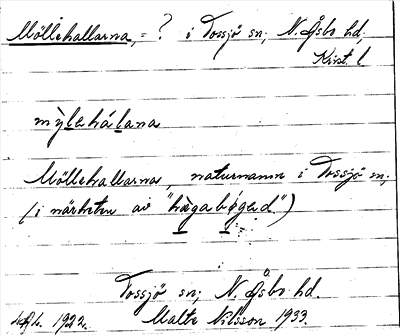 Möllehallarna, = ? i Tossjö sn; N. Åsbo hd,
Krist. l
mỳlehálana
Möllehallarna, naturnamn i Tossjö sn;
(i närheten av "högaböged.")
Tossjö sn; N. Åsbo hd.
1922. Malte Nilsson 1933.